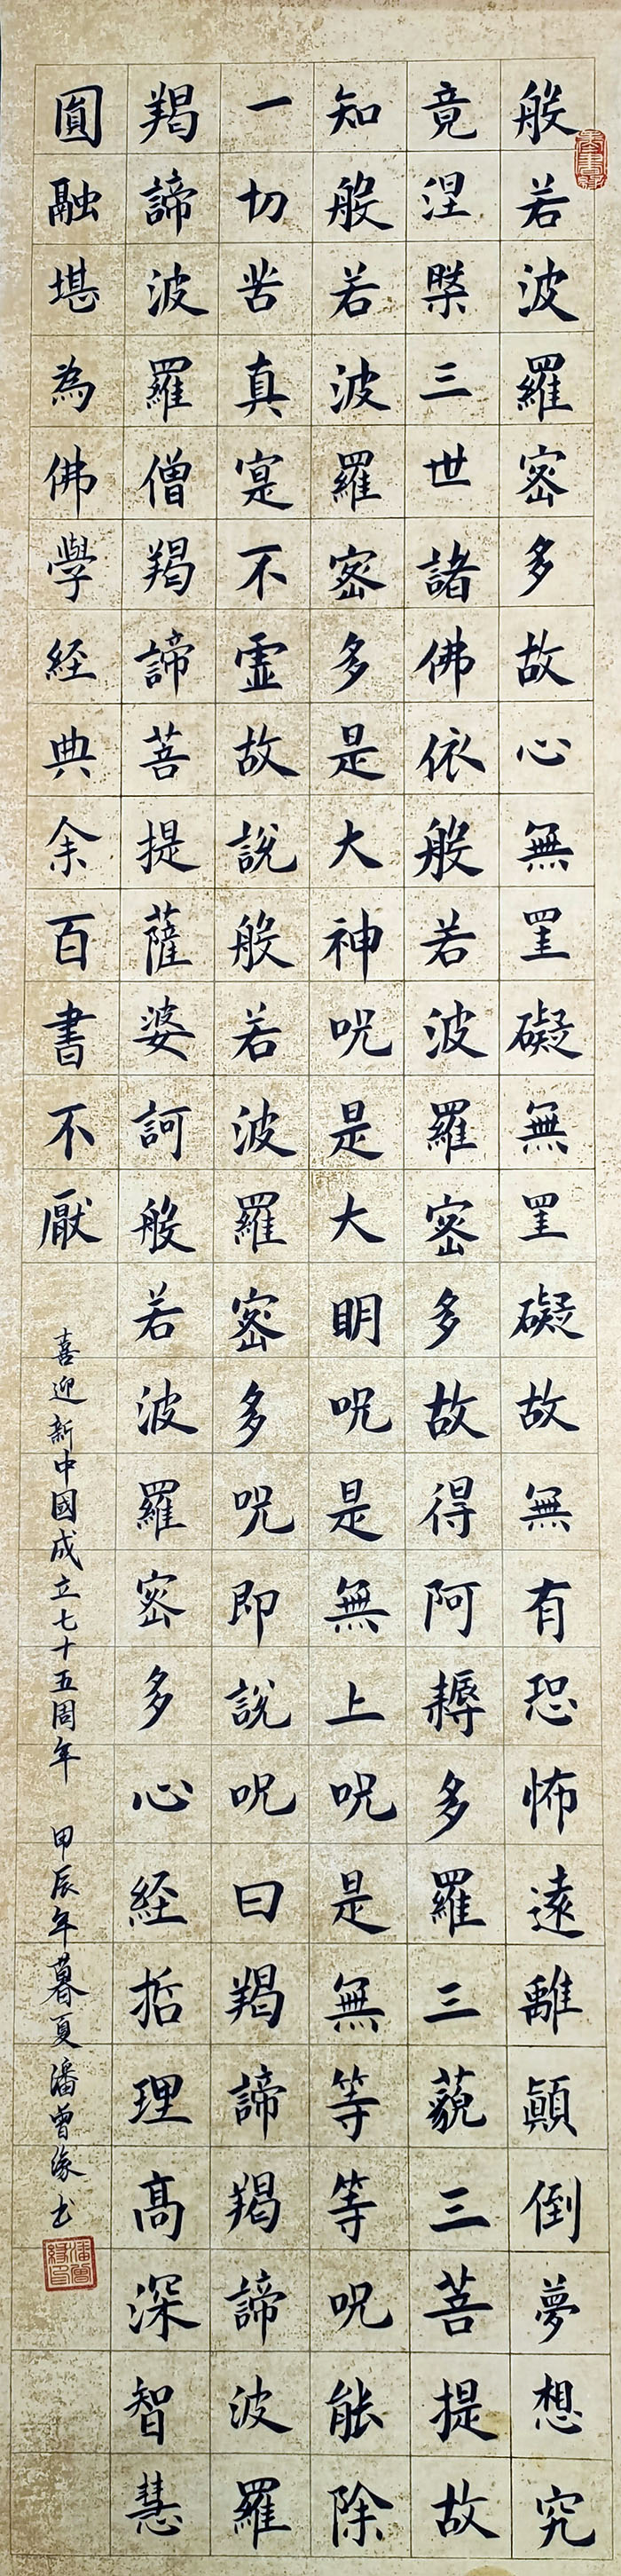 般若波羅密多故心無罣礙無罣礙故無有恐怖遠離顛倒夢想究
竟涅槃三世諸佛依般若波羅密多故得阿耨多羅三藐三菩提故
知般若波羅密多是大神呪是大明呪是無上呪是無等等呪能除
一切苦真寔不虛故說般若波羅密多呪即說呪曰羯諦羯諦波羅
羯諦波羅僧羯諦菩提薩婆訶般若波羅密多心経哲理高深智慧
圓融堪為佛學経典余百書不厭
喜迎新中國成立七十五周年 甲辰年暮夏潘曾緣书